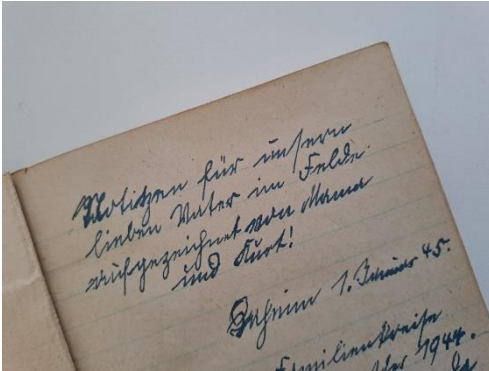 Notitzen für unsern
lieben Vater im Felde
aufgezeichnet von Mama
und Kurt!
Daheim 1. Januar 45.
Familienkreise
1944.